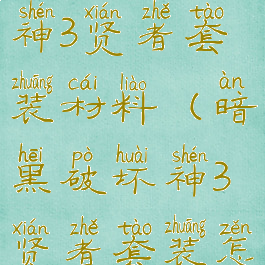 shén xián zhě tào
神3贤者套
zhuāng cái liào àn
装材料（暗
hēi pò huài shén
黑破坏神3
xián zhě tào zhuāng zěn
贤者套装怎